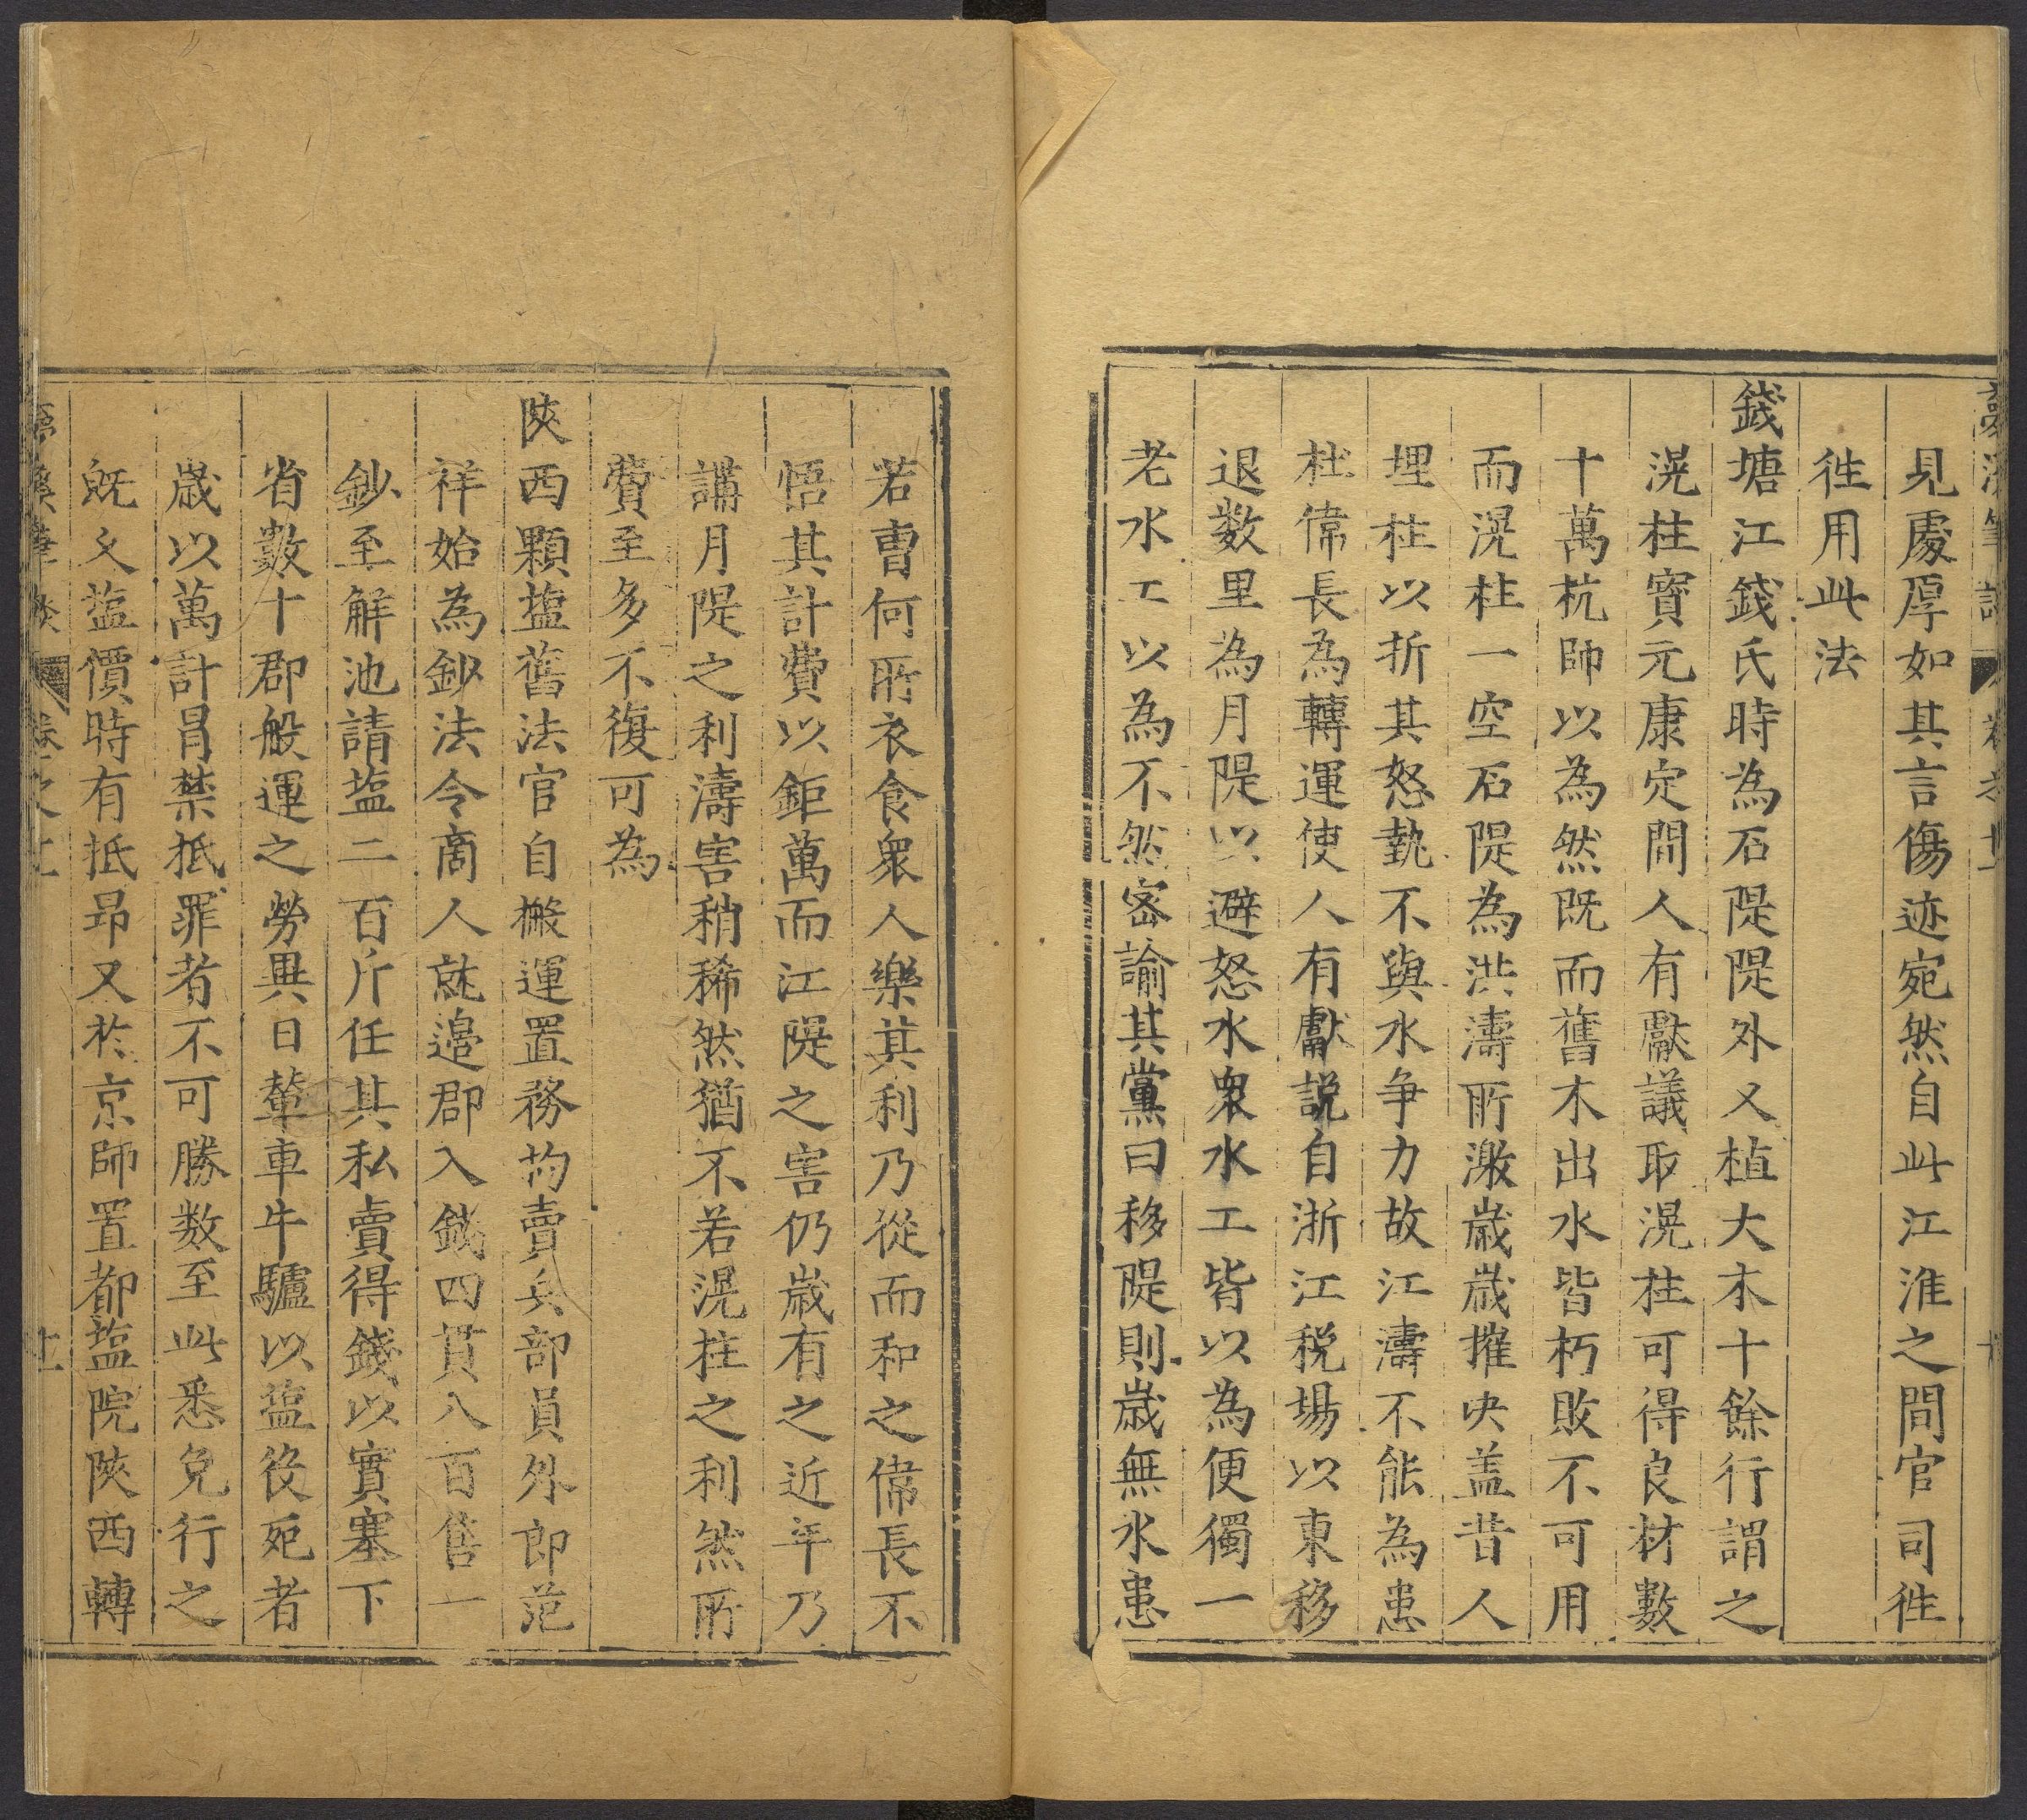 見處厚如其言傷迹宛然自此江淮之間官司徃
徃用此法
錢塘江錢氏時為石隄隄外又植大木十餘行謂之
滉柱寳元康定間人有獻議取滉柱可得良材數
十萬杭師以為然既而舊木出水皆朽敗不可用
而滉柱一空石隄為洪濤所激歳歳摧决盖昔人
埋柱以折其怒埶不與水争力故江濤不能為患
杜偉長為轉運使人有獻説自浙江税場以東移
退数里為月隄以避怒水衆水工皆以為便獨一
老水工以為不然宻諭其黨曰移隄則歳無水患
若曺何所衣食衆人樂其利乃從而和之偉長不
悟其計費以鉅萬而江隄之害仍歳有之近年乃
講月隄之利濤害稍稀然猶不若滉柱之利然所
費至多不復可為
陜西顆塩舊法官自搬運置務拘賣兵部員外郎范
祥始為鈔法令商人就邉郡入錢四貫八百售一
鈔至解池請塩二百斤任其私賣得錢以實塞下
省數十郡般運之勞異日輦車牛驢以塩役死者
歳以萬計冒禁抵罪者不可勝数至此悉免行之
既乆塩價時有抵昻又於京師置都塩院陜西轉